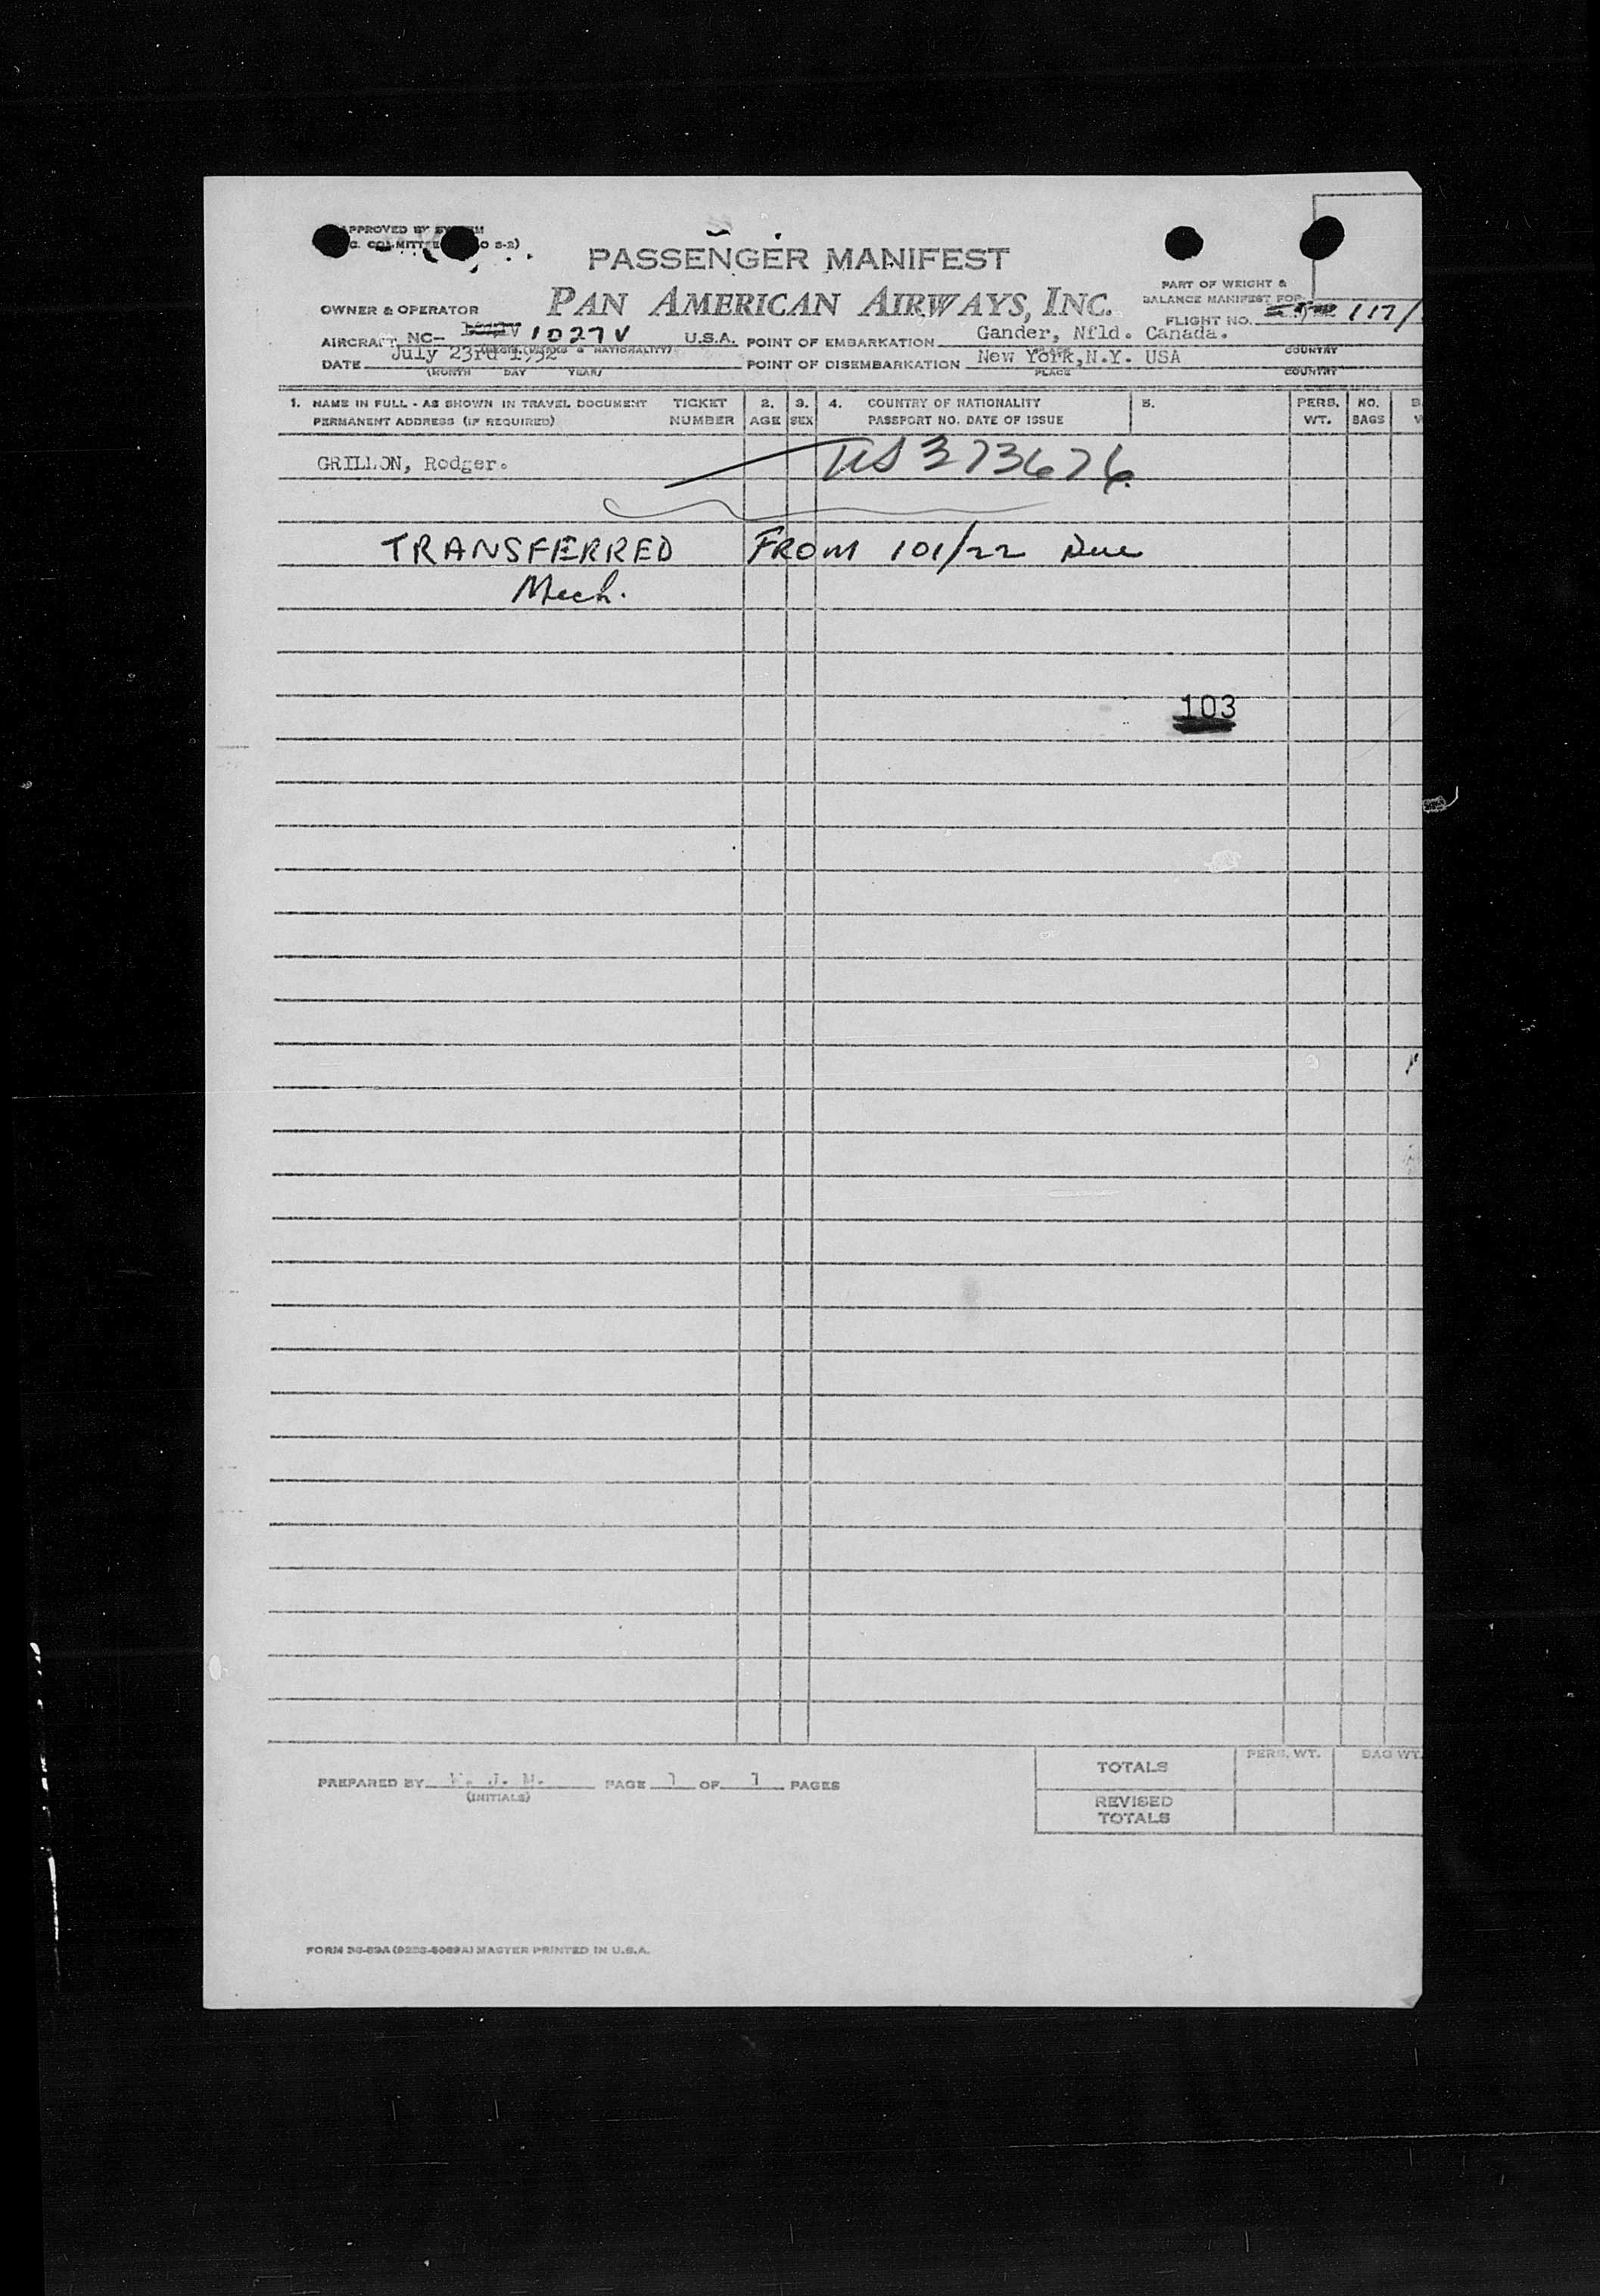 APPROVED BY
PASSENGER MANIFEST
PAN AMERICAN AIRWAYS, INC.
PART OF WEIGHT &
BALANCE MANIFEST FOR
OWNER & OPERATOR
FLIGHT NO. 117/
AIRCRAFT NC- 1027V U.S.A. POINT OF EMBARKATION Gander, Nfld. Canada.
(REGIS. MARKS & NATIONALITY) PLACE COUNTRY
DATE July 23rd 1952 POINT OF DISEMBARKATION New York, N.Y. USA
(MONTH DAY YEAR) PLACE COUNTRY
1. NAME IN FULL - AS SHOWN IN TRAVEL DOCUMENT TICKET 2. 3. 4. COUNTRY OF NATIONALITY 5. PERS. NO.
PERMANENT ADDRESS (IF REQUIRED) NUMBER AGE SEX PASSPORT NO. DATE OF ISSUE WT. BAGS
GRILLON, Rodger. US 373676
TRANSFERRED FROM 101/22 Due
Mech.
103
PREPARED BY J. PAGE 1 OF 1 PAGES
(INITIALS)
TOTALS PERS. WT. BAG WT.
REVISED
TOTALS
MASTER PRINTED IN U.S.A.